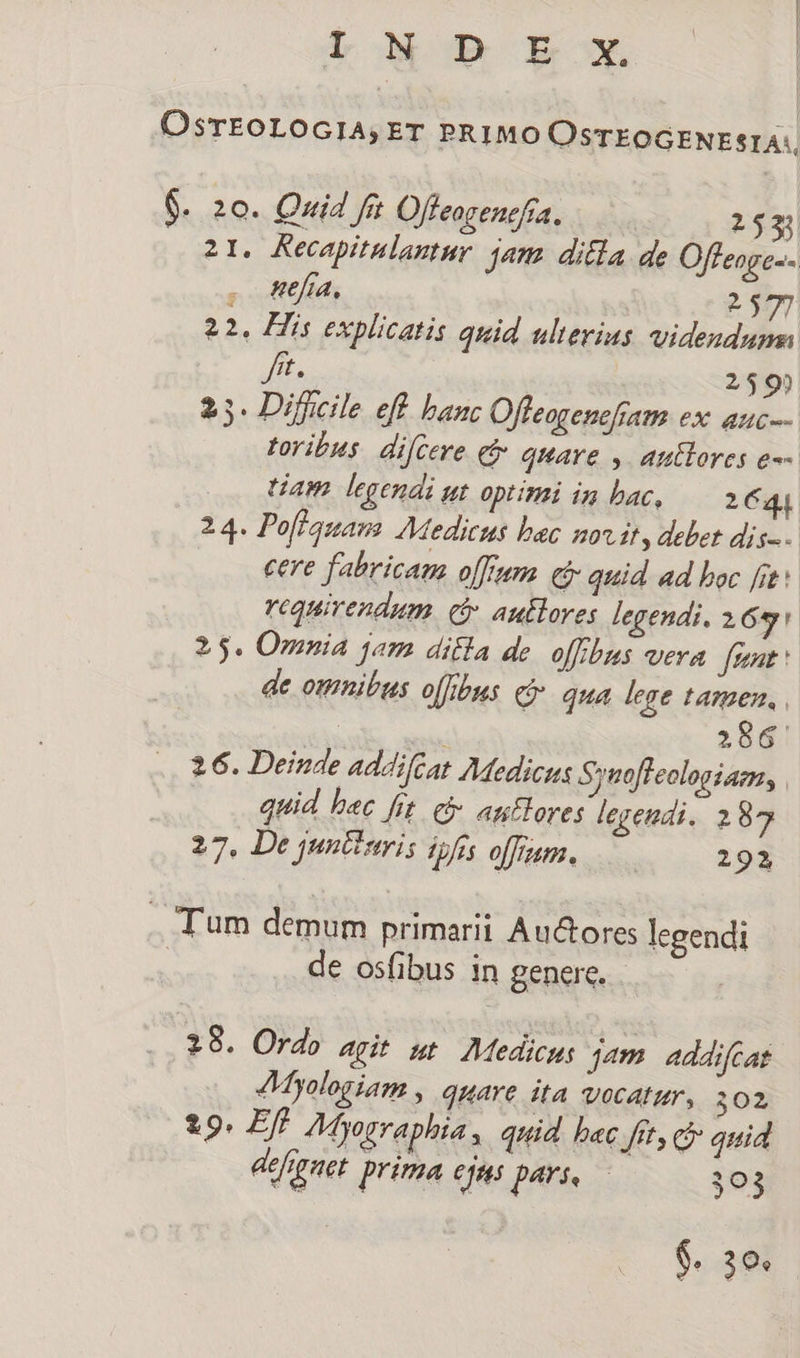 INDEX.
OSTEOLOGIA, ET PRIMO OSTEOGENESIA.
§. 20. Quid ſit Oſteogeneſia. 253
21. Recapitulantur jam dicta de Oſteoge-
neſia, 257
22. His explicatis quid ulterius videndum
ſit. 259
23. Difficile eſt hanc Oſteogeneſiam ex auc-
toribus diſcere & quare, auctores e-
tiam legendi ut optimi in hac, 264
24. Poſtquam Medicus hæc novit, debet dis-
cere fabricam oſſium & quid ad hoc ſit
requirendum & auctores legendi. 269
25. Omnia jam dicta de oſſibus vera ſunt
de omnibus oſſibus & qua lege tamen.
286
26. Deinde addiſcat Medicus Synoſteologiam,
quid hæc ſit & auctores legendi. 287
27. De juncturis ipſis oſſium. 292
Tum demum primarii Auctores legendi
de osſibus in genere.
28. Ordo agit ut Medicus jam addiſcat
Myologiam, quare ita vocatur, 302
29. Eſt Myographia, quid hæc ſit, & quid
deſignet prima ejus pars. 303
§. 30.